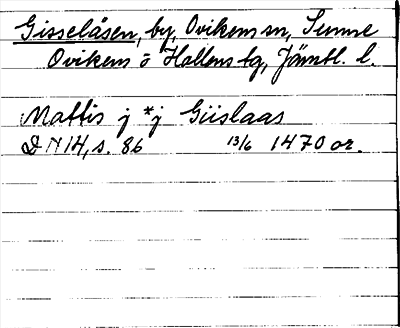 Gisselåsen, by, Ovikens sn, Sunne
Ovikens o Hallens tg, Jämtl. l.
Mattis j *j Giislaas
DN 14, s. 86 13/6 1470 or.